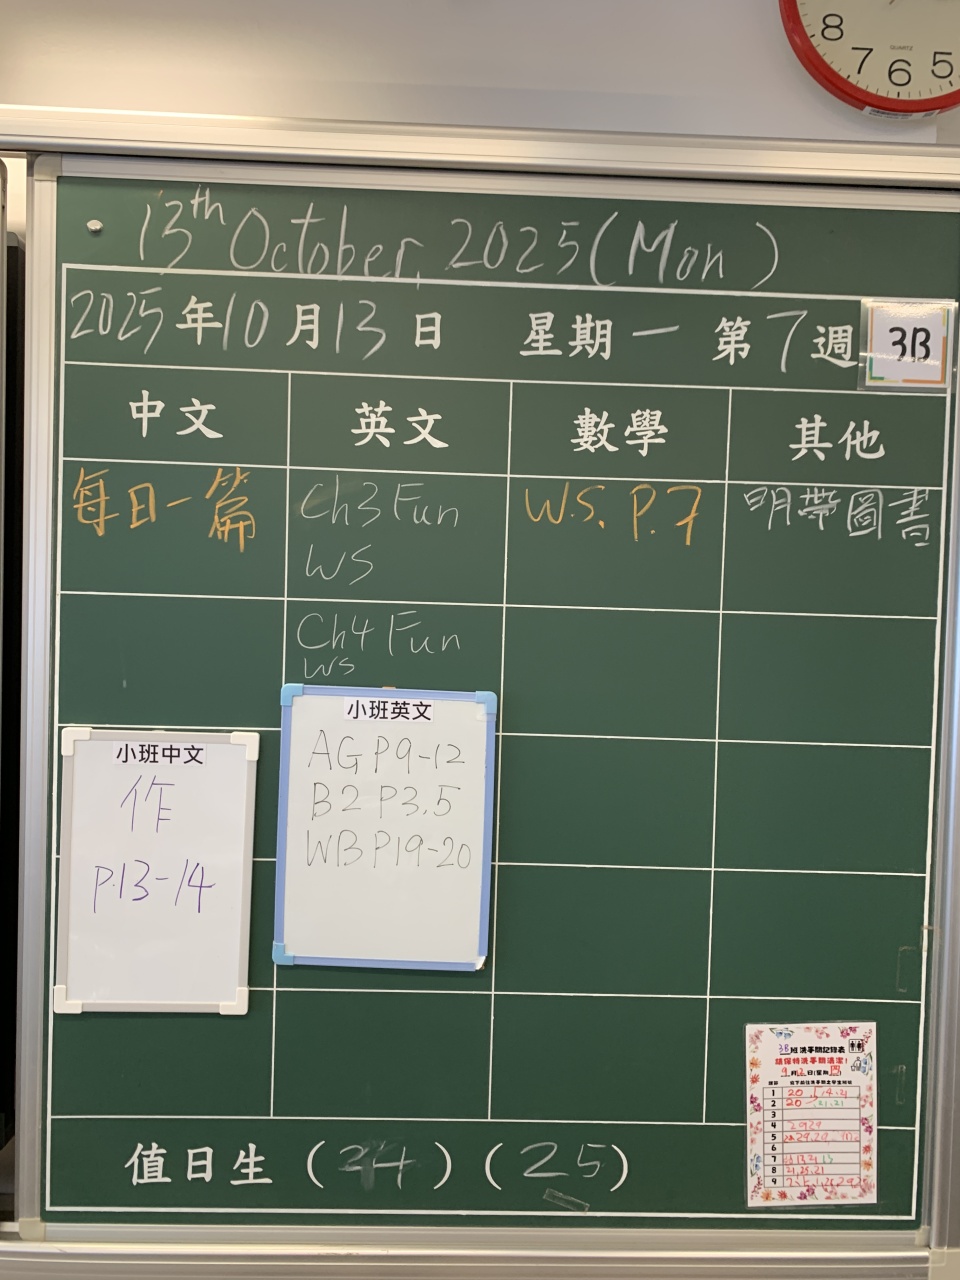 8
7
6
5
QUARTZ
13th October, 2025 (Mon)
2025年10月13日 星期一 第7週
3B
中文 英文 數學 其他
每日一篇
Ch3 Fun
WS
W.S. P.7
明帶圖書
Ch4 Fun
WS
小班中文
作
P.13-14
小班英文
AG P9-12
B2 P3,5
WB P19-20
3B班洗手間記錄表
請保持洗手間清潔！
1
2
3
4
5
6
7
8
9
值日生(24)(25)